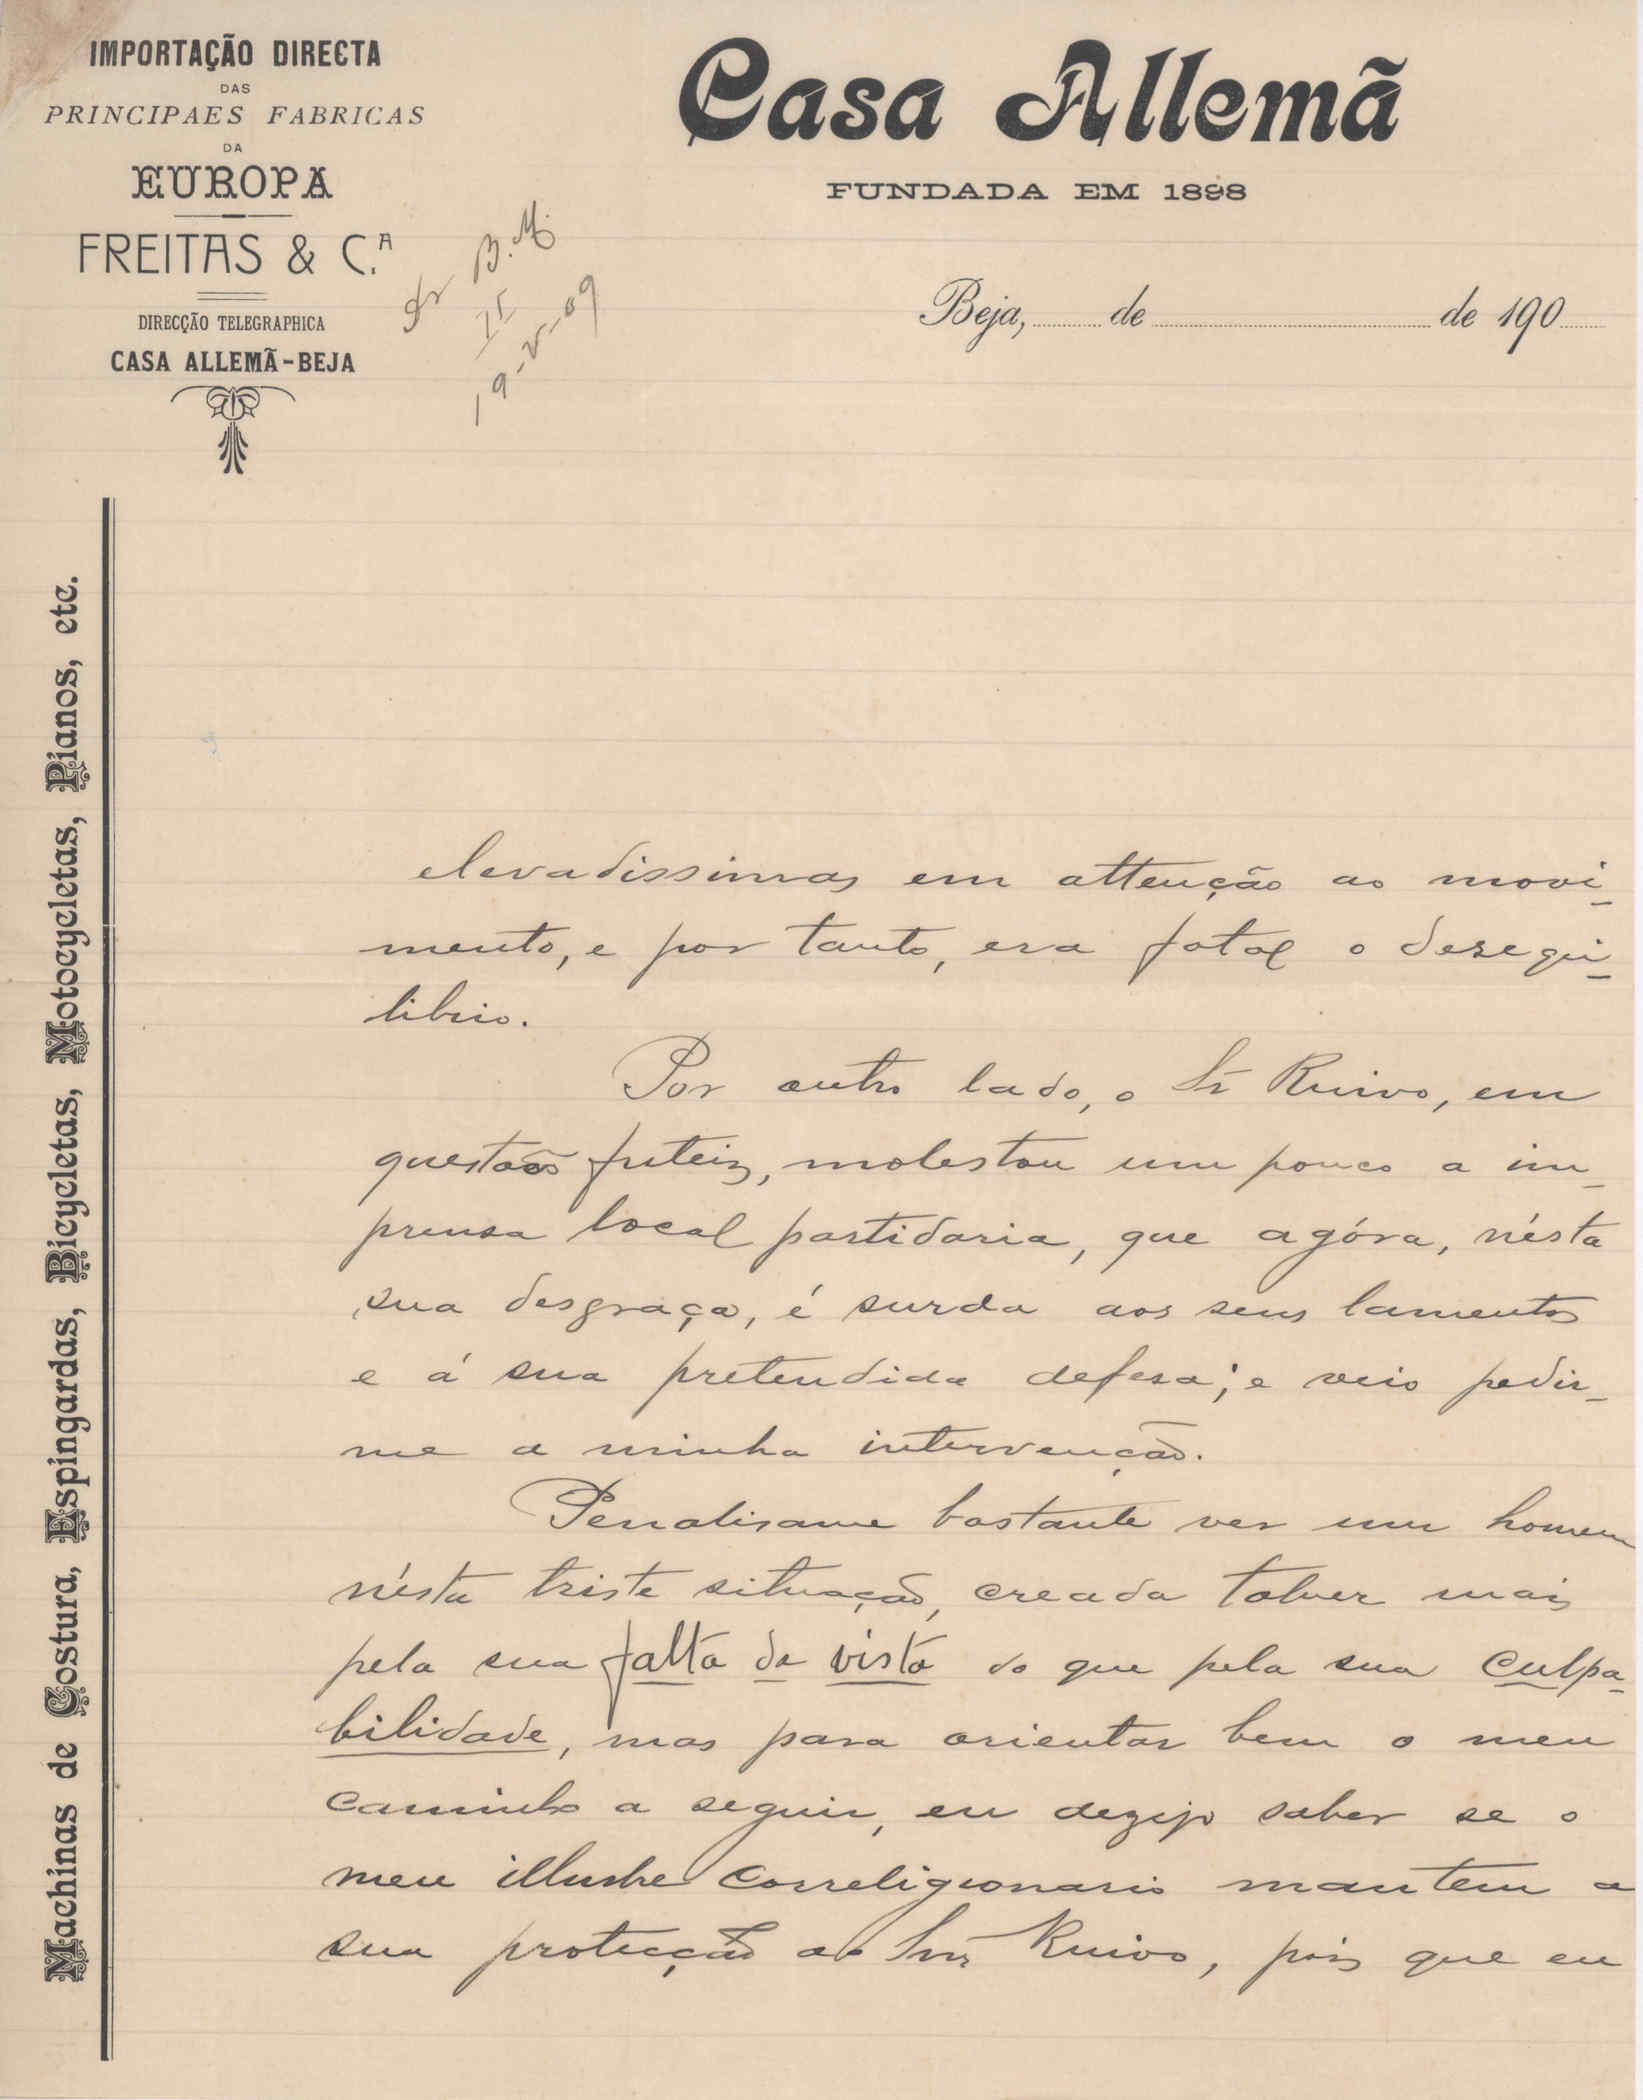 IMPORTAÇÃO DIRECTA
DAS
PRINCIPAES FABRICAS
DA
EUROPA
FREITAS & C.ª
DIRECÇÃO TELEGRAPHICA
CASA ALLEMÃ-BEJA
Casa Allemã
FUNDADA EM 1898
B. M.
II
19-V-09
Beja, de de 190
Machinas de Costura, Espingardas, Bicycletas, Motocycletas, Pianos, etc.
elevadissimas em attenção ao movi-
mento, e por tanto, era fatal o desequi-
librio.
Por outro lado, o Sr Ruivo, em
questões futeis, molestou um pouco a im-
prensa local partidaria, que agóra, nésta
sua desgraça, é surda aos seus lamentos
e á sua pretendida defesa; e veio pedir-
me a minha intervenção.
Penalisame bastante ver um homem
nésta triste situação, creada talvez mais
pela sua falta de vista do que pela sua culpa-
bilidade, mas para orientar bem o meu
caminho a seguir, eu dezejo saber se o
meu illustre correligionario mantem a
sua protecção ao Snr Ruivo, pois que eu